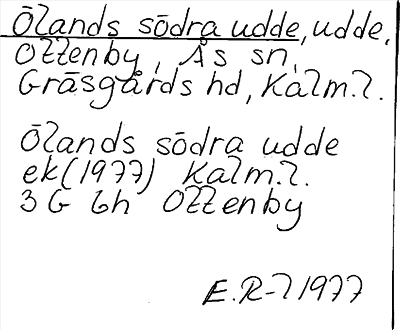 Ölands södra udde, udde,
Ottenby, Ås sn,
Gräsgårds hd, Kalm.l.
Ölands södra udde
ek (1977) Kalm.l.
3 G 6h Ottenby
E.R-l 1977